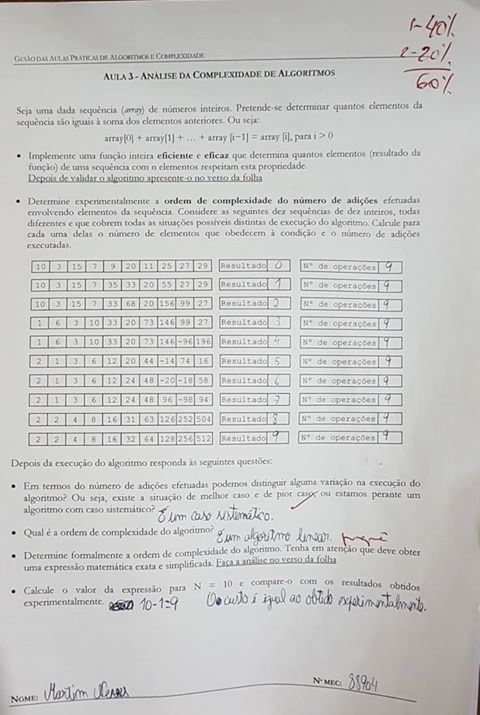 1-40%
2-20%
60%
GUIÃO DAS AULAS PRÁTICAS DE ALGORITMOS E COMPLEXIDADE
AULA 3 - ANÁLISE DA COMPLEXIDADE DE ALGORITMOS
Seja uma dada sequência (array) de números inteiros. Pretende-se determinar quantos elementos da
sequência são iguais à soma dos elementos anteriores. Ou seja:
array[0] + array[1] + … + array [i−1] = array [i], para i > 0
• Implemente uma função inteira eficiente e eficaz que determina quantos elementos (resultado da
função) de uma sequência com n elementos respeitam esta propriedade.
Depois de validar o algoritmo apresente-o no verso da folha
• Determine experimentalmente a ordem de complexidade do número de adições efetuadas
envolvendo elementos da sequência. Considere as seguintes dez sequências de dez inteiros, todas
diferentes e que cobrem todas as situações possíveis distintas de execução do algoritmo. Calcule para
cada uma delas o número de elementos que obedecem à condição e o número de adições
executadas.
10 3 15 7 9 20 11 25 27 29 Resultado 0 Nº de operações 9
10 3 15 7 35 33 20 55 27 29 Resultado 1 Nº de operações 9
10 3 15 7 33 68 20 156 99 27 Resultado 2 Nº de operações 9
1 6 3 10 33 20 73 146 99 27 Resultado 3 Nº de operações 9
1 6 3 10 33 20 73 146 -96 196 Resultado 4 Nº de operações 9
2 1 3 6 12 20 44 -14 74 16 Resultado 5 Nº de operações 9
2 1 3 6 12 24 48 -20 -18 58 Resultado 6 Nº de operações 9
2 1 3 6 12 24 48 96 -98 94 Resultado 7 Nº de operações 9
2 2 4 8 16 31 63 126 252 504 Resultado 8 Nº de operações 9
2 2 4 8 16 32 64 128 256 512 Resultado 9 Nº de operações 9
Depois da execução do algoritmo responda às seguintes questões:
• Em termos do número de adições efetuadas podemos distinguir alguma variação na execução do
algoritmo? Ou seja, existe a situação de melhor caso e de pior caso, ou estamos perante um
algoritmo com caso sistemático? É um caso sistemático.
• Qual é a ordem de complexidade do algoritmo? É um algoritmo linear. porquê
• Determine formalmente a ordem de complexidade do algoritmo. Tenha em atenção que deve obter
uma expressão matemática exata e simplificada. Faça a análise no verso da folha
• Calcule o valor da expressão para N = 10 e compare-o com os resultados obtidos
experimentalmente. 10-1=9 O custo é igual ao obtido experimentalmente.
NOME: Martim Neves
Nº MEC: 88904